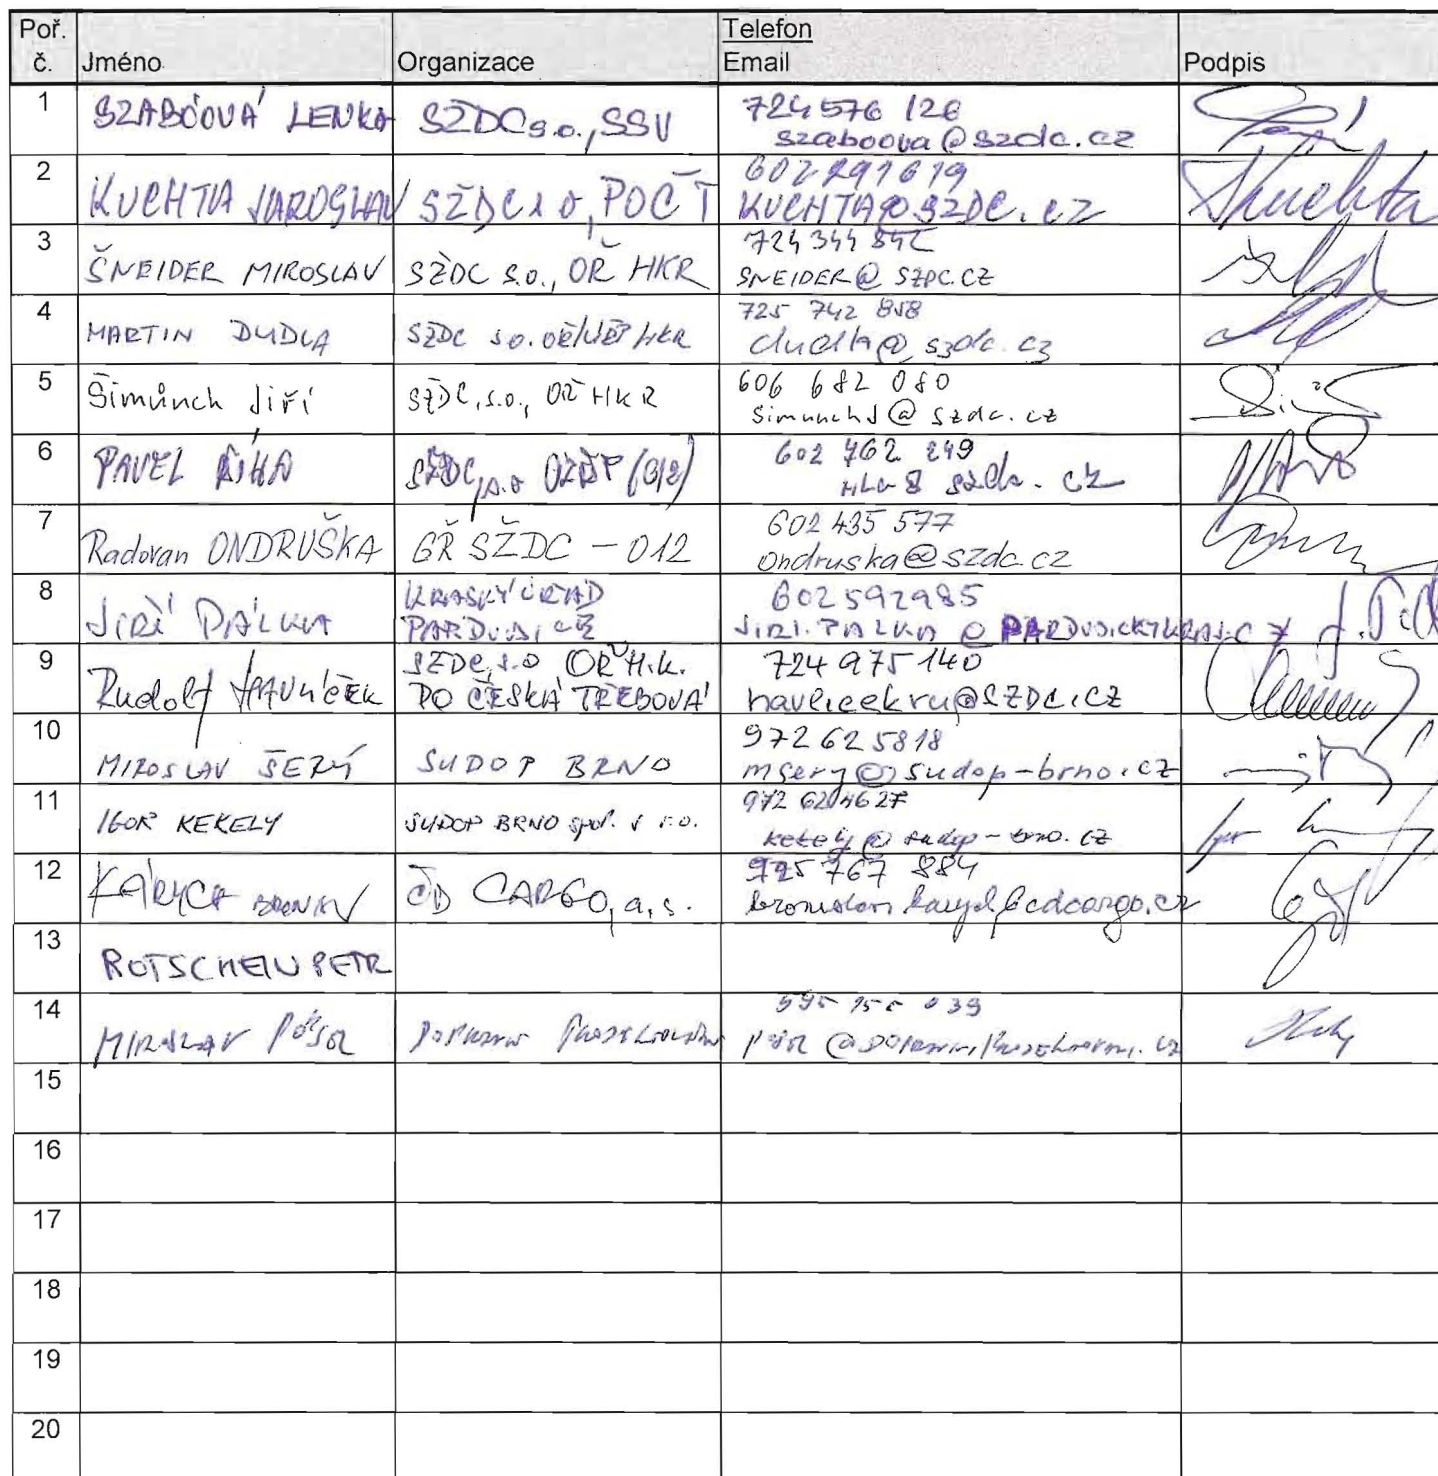 Poř. č. Jméno Organizace Telefon Email Podpis
1 SZABÓOVÁ LENKA SŽDC s.o., SSV 724 576 126
szaboova@szdc.cz
2 KUCHTA JAROSLAV SŽDC s.o, POČT 602 291 619
KUCHTA@SZDC.CZ
3 ŠNEIDER MIROSLAV SŽDC s.o., OŘ HKR 724 344 842
SNEIDER@SZDC.CZ
4 MARTIN DUDLA SŽDC s.o. HKR 725 742 858
dudla@szdc.cz
5 Šimůnch Jiří SŽDC, s.o., OŘ HKR 606 682 080
simunchJ@szdc.cz
6 PAVEL ŘÍHA SŽDC, s.o 602 762 249
szdc.cz
7 Radovan ONDRUŠKA GŘ SŽDC - 012 602 435 577
ondruska@szdc.cz
8 JIŘÍ PÁLKA KRAJSKÝ ÚŘAD PARDUBICE 602 592 985
JIRI.PALKA@PARDUBICKYKRAJ.CZ
9 Rudolf HAVLÍČEK SŽDC, s.o OŘ H.K. 724 975 140
PO ČESKÁ TŘEBOVÁ havlicekru@SZDC.CZ
10 MIROSLAV ŠERÝ SUDOP BRNO 972 625 818
msery@sudop-brno.cz
11 IGOR KEKELY SUDOP BRNO spol. s r.o. 972 624 627
kekely@sudop-brno.cz
12 KÁRYCH ČD CARGO, a.s. 725 767 884
13 ROTSCHEIN PETR
14 MIROSLAV
15
16
17
18
19
20